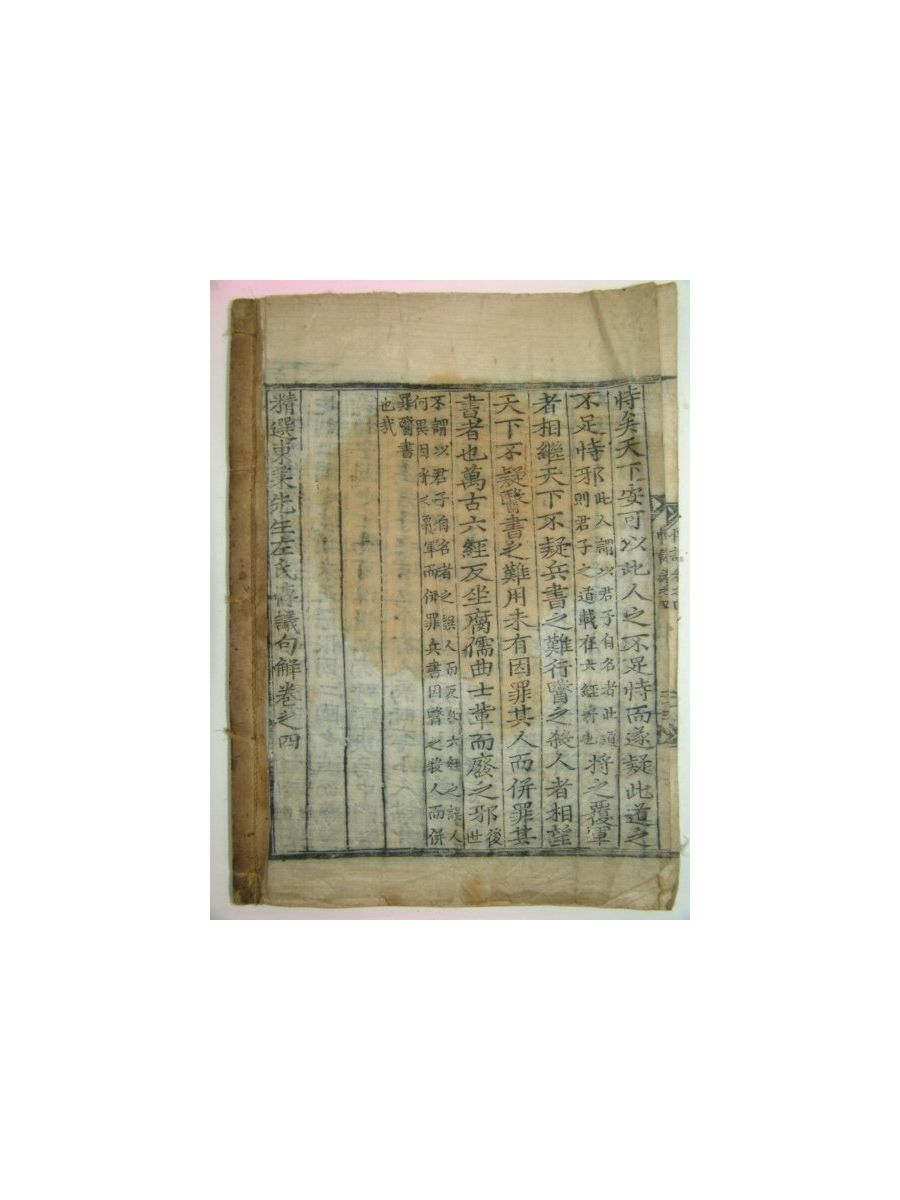 恃矣天下安可以此人之不足恃而遂疑此道之
不足恃邪此人謂以君子自名者此道則君子之道載在六經者也將之覆軍
者相繼天下不疑兵書之難行醫之殺人者相望
天下不疑醫書之難用未有因罪其人而併罪其
書者也萬古六經反坐腐儒曲士輩而廢之邪後世
不謂以君子自名者之誤人而反以六經之誤人何異因將之覆軍而併罪兵書因醫之殺人而併
罪醫書也哉
精選東萊先生左氏博議句解卷之四